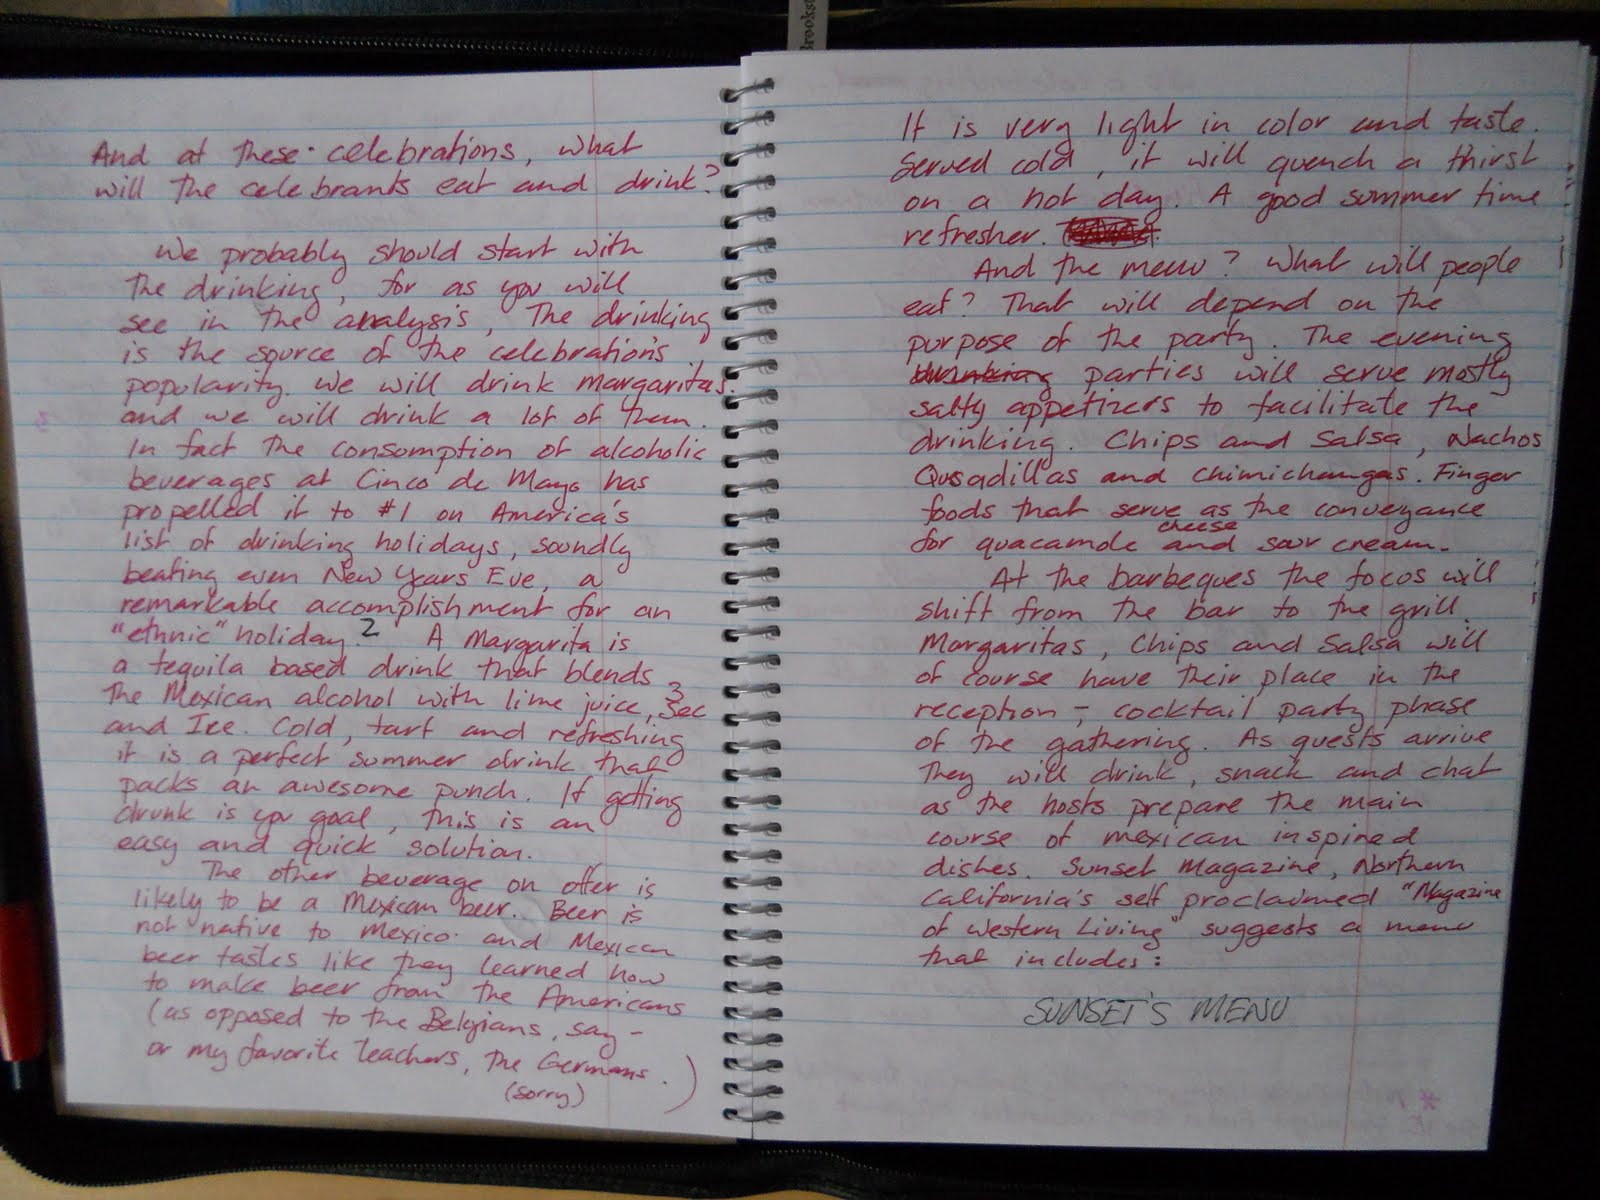 Brooks
And at these celebrations, what
will the celebrants eat and drink?
We probably should start with
the drinking, for as you will
see in the analysis, The drinking
is the source of the celebration's
popularity. We will drink margaritas.
and we will drink a lot of them.
In fact the consomption of alcoholic
beverages at Cinco de Mayo has
propelled it to #1 on America's
list of drinking holidays, soundly
beating even New Years Eve, a
remarkable accomplishment for an
"ethnic" holiday. 2 A Margarita is
a tequila based drink that blends
the Mexican alcohol with lime juice, 3 Sec
and Ice. Cold, tart and refreshing
it is a perfect summer drink that
packs an awesome punch. If getting
drunk is yor goal, this is an
easy and quick solution.
The other beverage on offer is
likely to be a Mexican beer. Beer is
not native to Mexico and Mexican
beer tastes like they learned how
to make beer from the Americans
(as opposed to the Belgians, say -
or my favorite teachers, the Germans.)
(sorry)
It is very light in color and taste.
Served cold, it will quench a thirst
on a hot day. A good summer time
refresher.
And the menu? What will people
eat? That will depend on the
purpose of the party. The evening
drinking parties will serve mostly
salty appetizers to facilitate the
drinking. Chips and Salsa, Nachos
Qusadillas and Chimichangas. Finger
foods that serve as the conveyance
for guacamole cheese and sour cream.
At the barbeques the focos will
shift from the bar to the grill.
Margaritas, Chips and Salsa will
of course have their place in the
reception - cocktail party phase
of the gathering. As guests arrive
they will drink, snack and chat
as the hosts prepare the main
course of mexican inspired
dishes. Sunset Magazine, Northern
California's self proclaimed "Magazine
of Western Living" suggests a menu
that includes:
SUNSET'S MENU